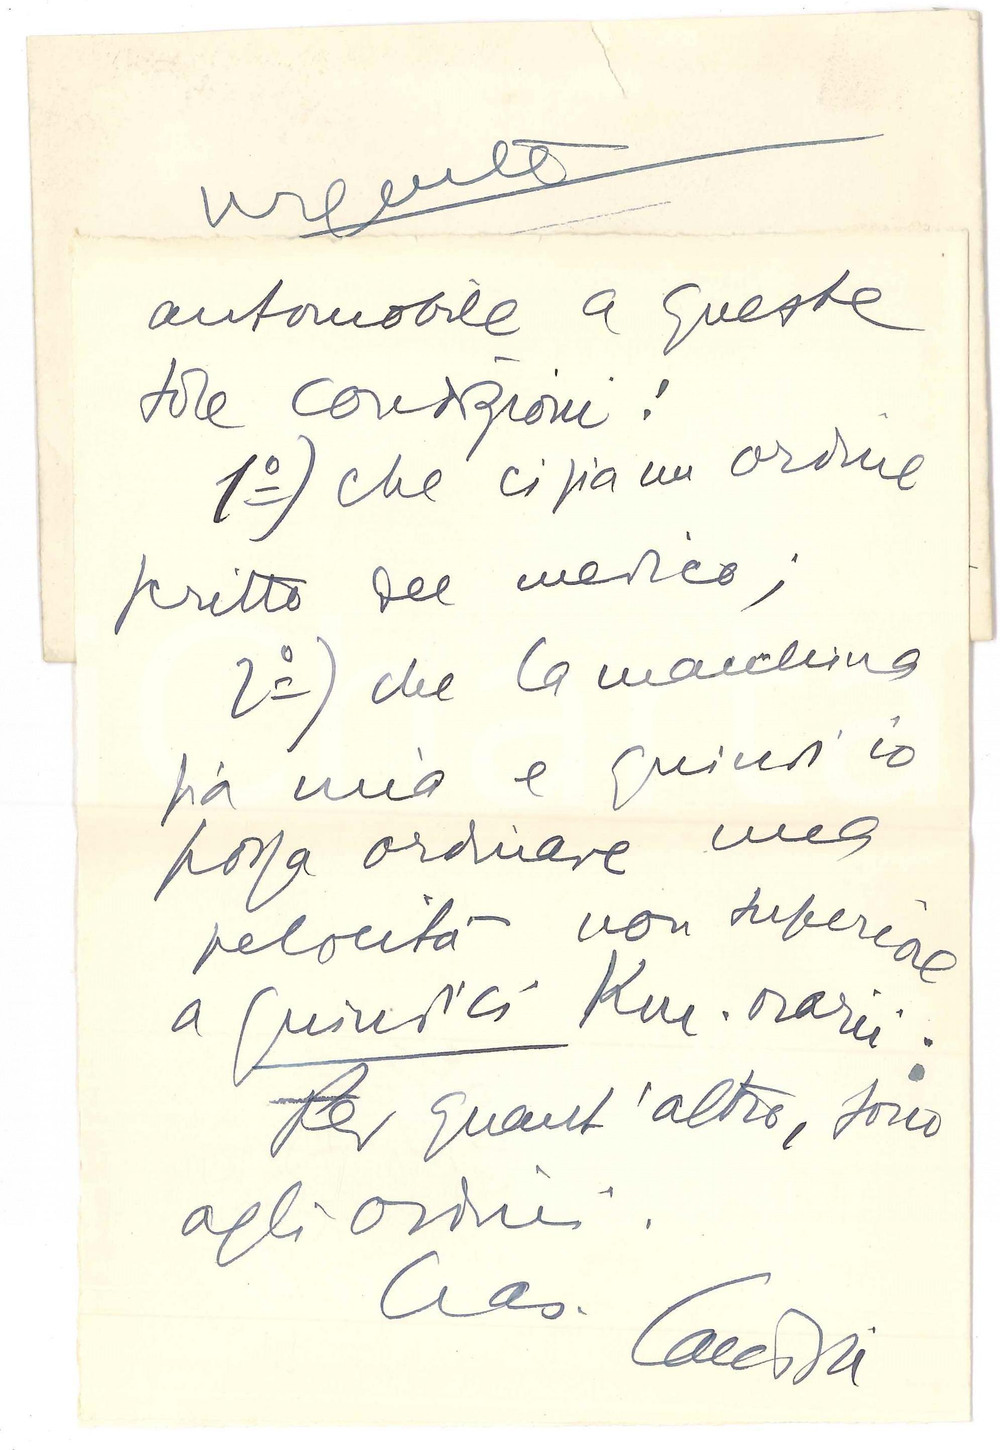 urgente
automobile a queste
sole condizioni:
1º) che ci sia un ordine
scritto del medico;
2º) che la macchina
sia mia e quindi io
possa ordinare una
velocità non superiore
a quindici Km. orari.
Per quant'altro, sono
agli ordini.
Ciao.